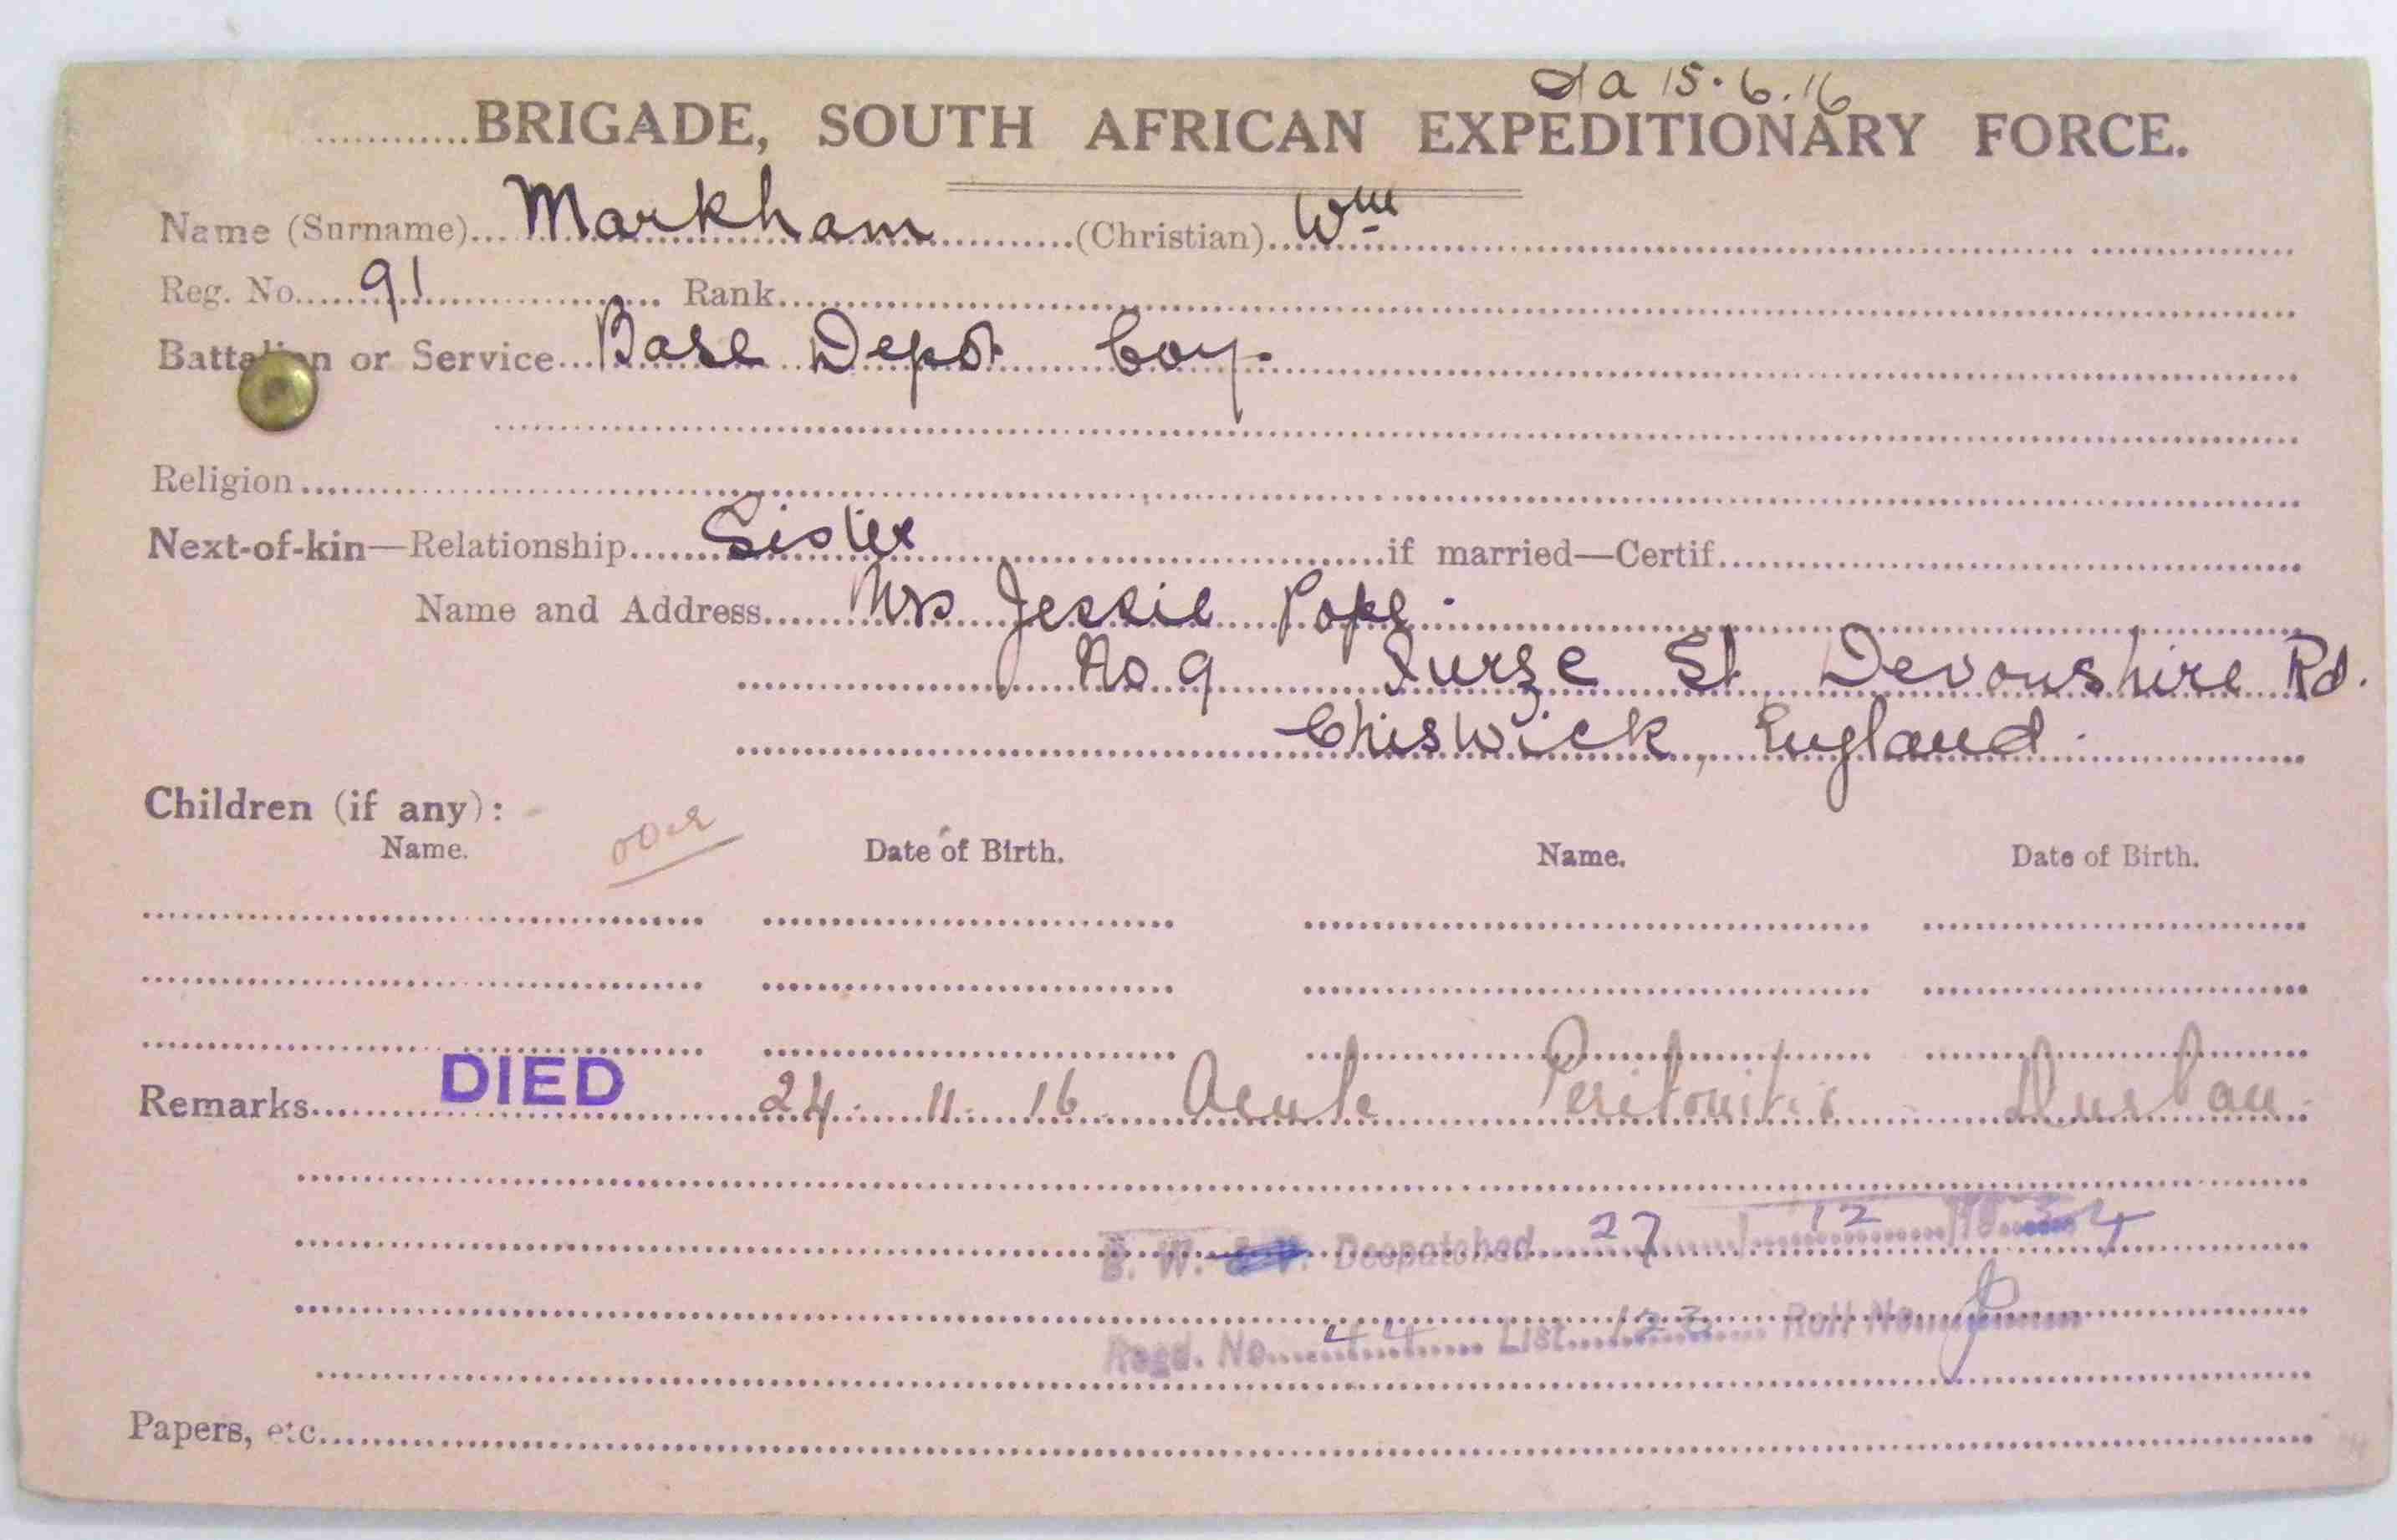 a 15.6.16
............BRIGADE, SOUTH AFRICAN EXPEDITIONARY FORCE.
Name (Surname)... Markham (Christian) Wm
Reg. No. 91 Rank
Battalion or Service... Base Depot Coy.
Religion
Next-of-kin—Relationship Sister if married—Certif
Name and Address Mrs Jessie Pope.
No 9 Furze St Devonshire Rd.
Chiswick, England.
Children (if any):
over
Name. Date of Birth. Name. Date of Birth.
Remarks DIED 24. 11. 16. Acute Peritonitis Durban.
B. W. Despatched 27 / 12 /19 34
Regd. No. 44 List 123 Roll No.
Papers, etc.